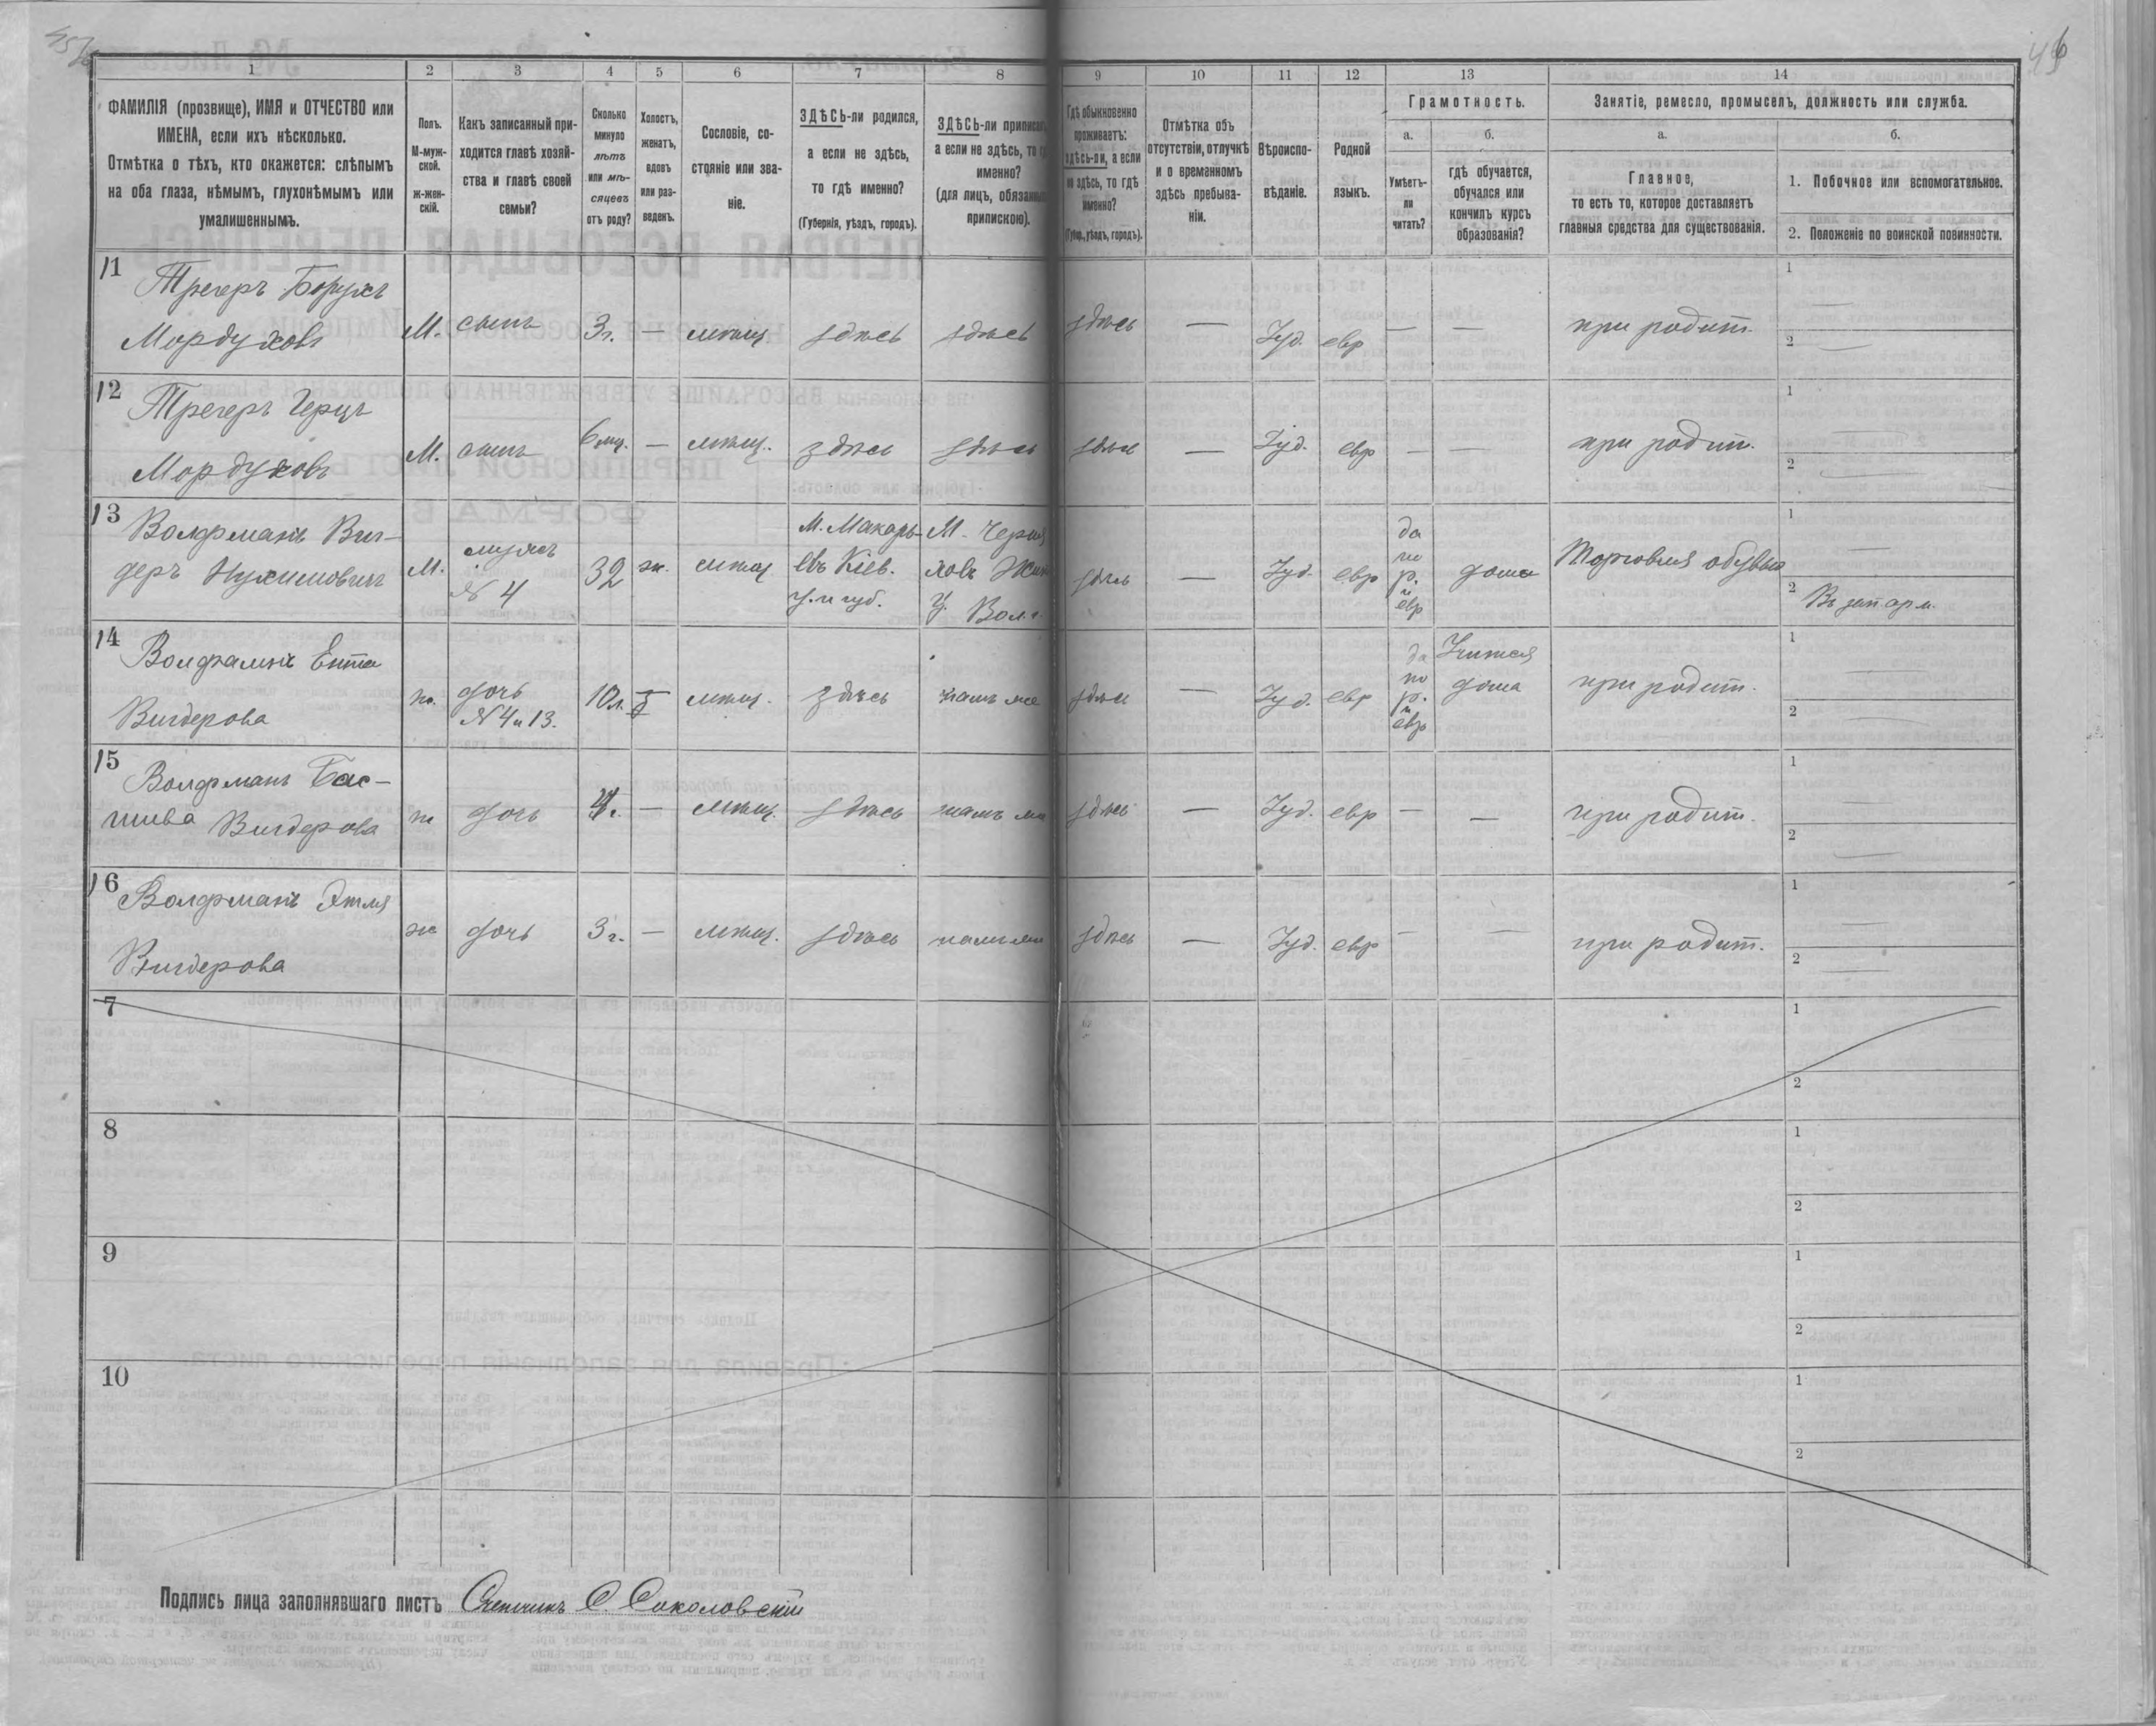 45
46
1 2 3 4 5 6 7 8 9 10 11 12 13 14
ФАМИЛІЯ (прозвище), ИМЯ и ОТЧЕСТВО или
ИМЕНА, если ихъ нѣсколько.
Отмѣтка о тѣхъ, кто окажется: слѣпымъ
на оба глаза, нѣмымъ, глухонѣмымъ или
умалишеннымъ.
Полъ.
М-муж-
ской.
Ж-жен-
скій.
Какъ записанный при-
ходится главѣ хозяй-
ства и главѣ своей
семьи?
Сколько
минуло
лѣтъ
или мѣ-
сяцевъ
отъ роду?
Холостъ,
женатъ,
вдовъ
или раз-
веденъ.
Сословіе, со-
стояніе или зва-
ніе.
ЗДѢСЬ-ли родился,
а если не здѣсь,
то гдѣ именно?
(Губернія, уѣздъ, городъ).
ЗДѢСЬ-ли приписанъ
а если не здѣсь, то гдѣ
именно?
(для лицъ, обязанныхъ
припискою).
Гдѣ обыкновенно
проживаетъ:
здѣсь-ли, а если
не здѣсь, то гдѣ
именно?
(Губер., уѣздъ, городъ).
Отмѣтка объ
отсутствіи, отлучкѣ
и о временномъ
здѣсь пребыва-
ніи.
Вѣроиспо-
вѣданіе.
Родной
языкъ.
Грамотность.
а.
Умѣетъ-
ли
читать?
б.
гдѣ обучается,
обучался или
кончилъ курсъ
образованія?
Занятіе, ремесло, промыселъ, должность или служба.
а.
Главное,
то есть то, которое доставляетъ
главныя средства для существованія.
б.
1. Побочное или вспомогательное.
2. Положеніе по воинской повинности.
11
Трегеръ Борухъ
Мордуховъ М. сынъ 3г. — мѣщ. здѣсь здѣсь здѣсь — Іуд. евр — — при родит.
1 —
2 —
12
Трегеръ Герцъ
Мордуховъ М. сынъ 6 мц. — мѣщ. здѣсь здѣсь здѣсь — Іуд. евр — — при родит.
1 —
2 —
13
Волфманъ Виг-
деръ Нухимовичъ М. мужъ
№ 4
32 ж. мѣщ
М. Макарь-
евъ Кіев.
у. и губ.
М. Черня
ховъ Жит
у. Вол. г.
здѣсь — Іуд. евр
да
по
р.
и
евр
дома Торговля обувью
1 —
2 Въ зап арм.
14
Волфманъ Ента
Вигдерова ж. дочь
№ 4 и 13.
10 л. мѣщ. здѣсь тамъ же здѣсь — Іуд. евр
да
по
р.
и
евр
Учится
дома
при родит.
1 —
2 —
15
Волфманъ Бас-
шива Вигдерова ж дочь 4г. — мѣщ. здѣсь тамъ же здѣсь — Іуд. евр — — при родит.
1 —
2 —
16
Волфманъ Этля
Вигдерова ж дочь 3 г. — мѣщ. здѣсь тамъ же здѣсь — Іуд. евр — — при родит.
1 —
2 —
7
1
2
8
1
2
9
1
2
10
1
2
Подпись лица заполнявшаго листъ Счетчикъ С. Соколовскій